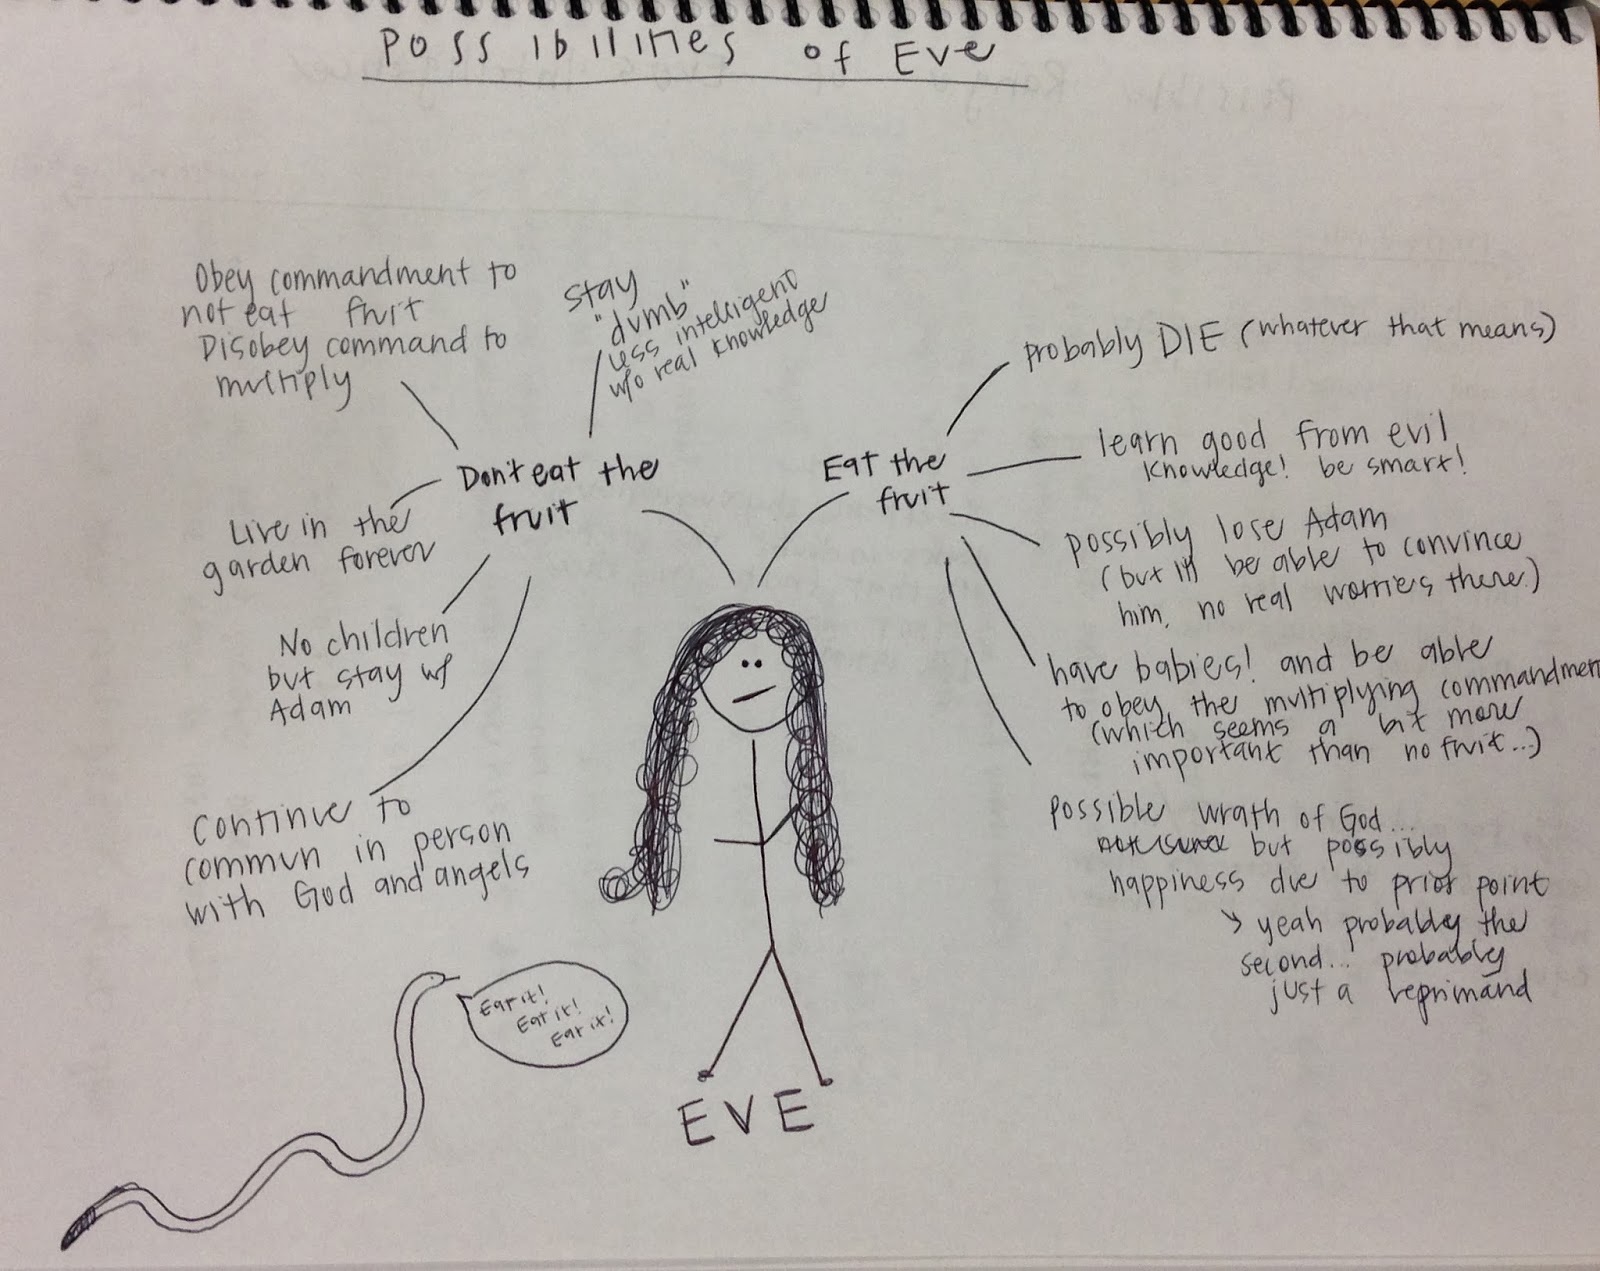 Possibilities of Eve
Obey commandment to
not eat fruit
Disobey command to
multiply
Stay
"dumb"
less intelligent
w/o real knowledge
Don't eat the
fruit
Live in the
garden forever
No children
but stay w/
Adam
Continue to
commun in person
with God and angels
Eat the
fruit
probably DIE (whatever that means)
learn good from evil
knowledge! be smart!
possibly lose Adam
(but I'll be able to convince
him, no real worries there.)
have babies! and be able
to obey the multiplying commandment
(which seems a bit more
important than no fruit...)
possible wrath of God...
but possibly
happiness due to prior point
yeah probably the
second... probably
just a reprimand
Eat it!
Eat it!
Eat it!
EVE